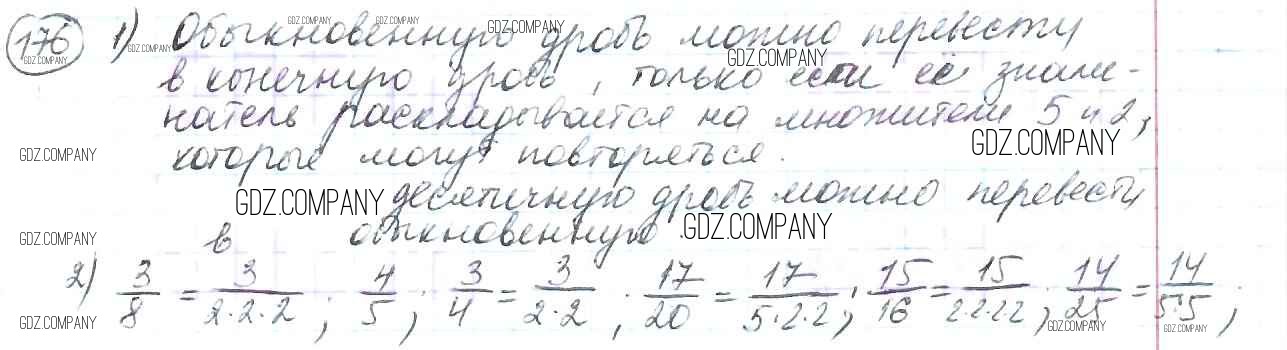 176 1) Обыкновенную дробь можно перевести
в конечную дробь, только если её знаме-
натель раскладывается на множители 5 и 2,
которые могут повторяться.
десятичную дробь можно перевести
в обыкновенную.
2) 3/8 = 3/2·2·2 ; 4/5 ; 3/4 = 3/2·2 ; 17/20 = 17/5·2·2 ; 15/16 = 15/2·2·2·2 ; 14/25 = 14/5·5 ;
GDZ.COMPANY
GDZ.COMPANY
GDZ.COMPANY
GDZ.COMPANY
GDZ.COMPANY
GDZ.COMPANY
GDZ.COMPANY
GDZ.COMPANY
GDZ.COMPANY
GDZ.COMPANY
GDZ.COMPANY
GDZ.COMPANY
GDZ.COMPANY
GDZ.COMPANY